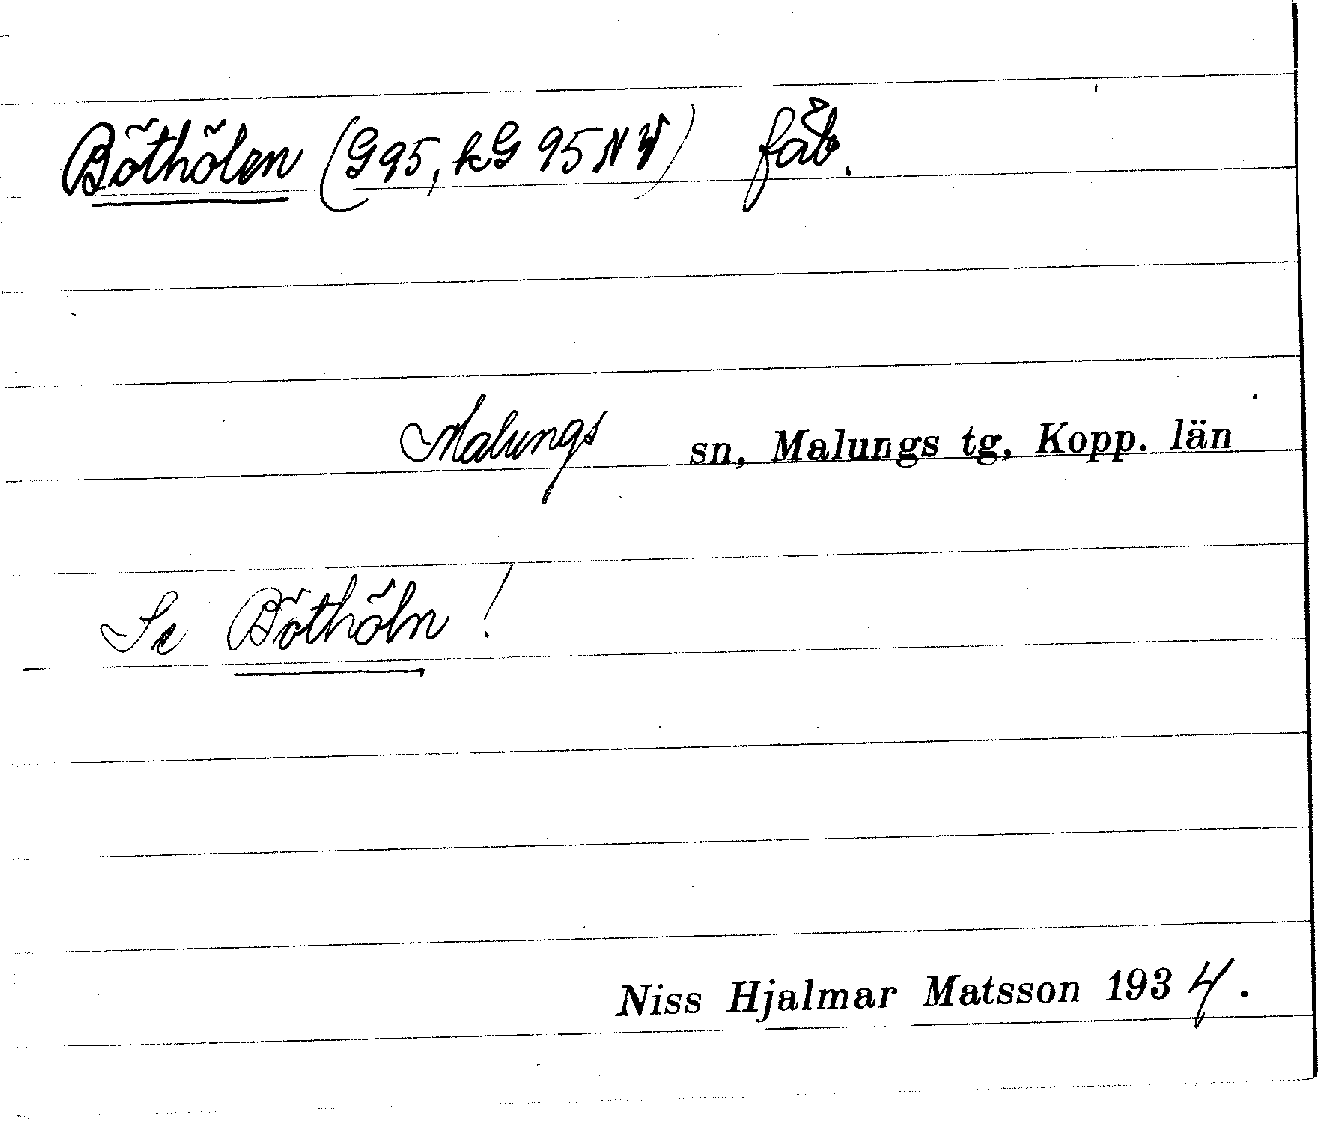 Böthölen (G95, kG 95 NV) fäb.
Malungs sn, Malungs tg, Kopp. län
Se Böthöln!
Niss Hjalmar Matsson 1934.